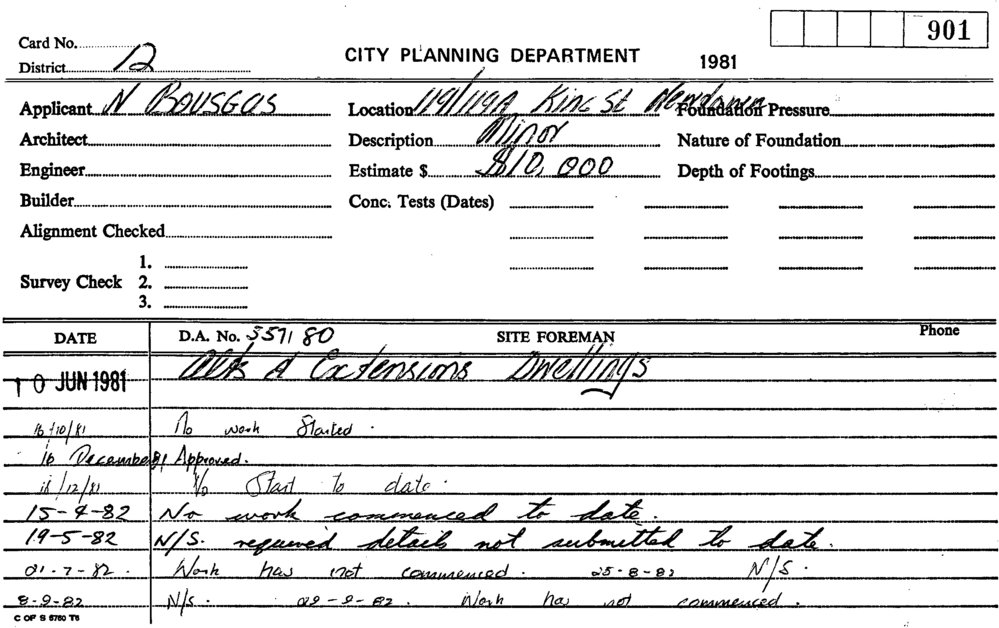 901
Card No.
District 12
CITY PLANNING DEPARTMENT 1981
Applicant N BOUSGAS Location 119/119A King St Foundation Pressure
Architect Description Minor Nature of Foundation
Engineer Estimate $ $10,000 Depth of Footings
Builder Conc. Tests (Dates)
Alignment Checked
1.
Survey Check 2.
3.
DATE D.A. No. 357/80 SITE FOREMAN Phone
10 JUN 1981 Alts & Extensions Dwellings
16/10/81 No work Started.
16 December 81 Approved.
/12/81 No Start to date.
15-4-82 No work commenced to date.
19-5-82 N/S. required details not submitted to date.
21.7-82. Work has not commenced. 25-8-82 N/S.
8-9-82 N/S. 29-9-82. Work has not commenced.
C OF S 5760 T6